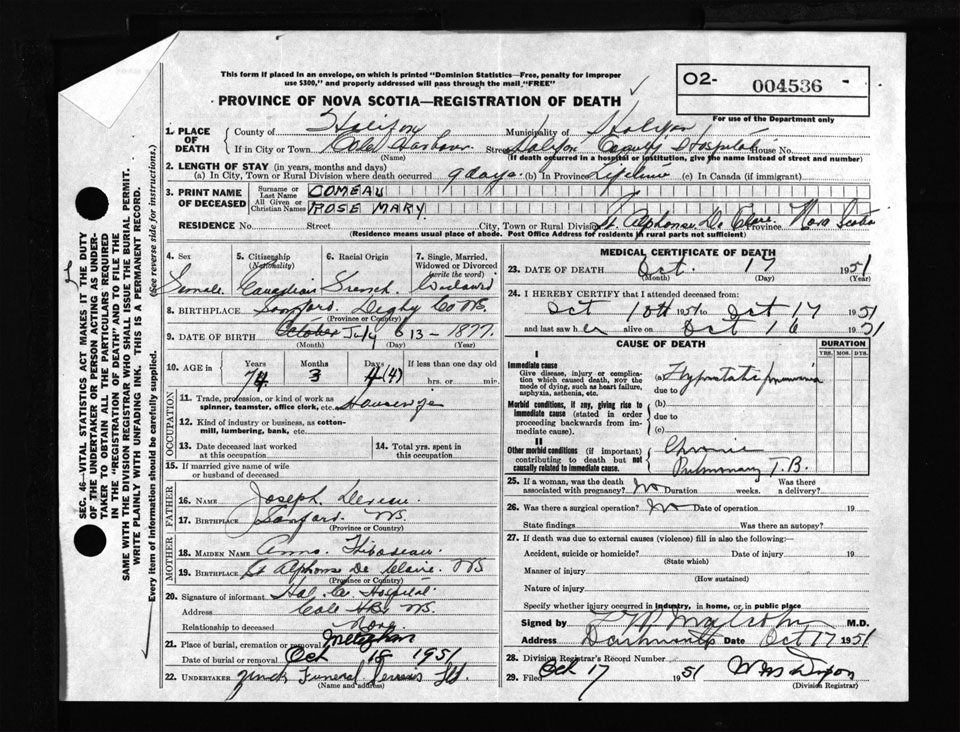 This form if placed in an envelope, on which is printed "Dominion Statistics—Free, penalty for improper
use $300," and properly addressed will pass through the mail "FREE"
O2- 004536 -
PROVINCE OF NOVA SCOTIA—REGISTRATION OF DEATH
For use of the Department only
1. PLACE OF DEATH
County of Halifax Municipality of Halifax
If in City or Town Cole Harbour Street Halifax County Hospital House No.
(Name) (If death occurred in a hospital or institution, give the name instead of street and number)
2. LENGTH OF STAY (in years, months and days)
(a) In City, Town or Rural Division where death occurred 9 days. (b) In Province Lifetime (c) In Canada (if immigrant)
3. PRINT NAME OF DECEASED
Surname or Last Name COMEAU
All Given or Christian Names ROSE MARY
RESIDENCE No. Street City, Town or Rural Division St. Alphonse De Clare. Province Nova Scotia
(Residence means usual place of abode. Post Office Address for residents in rural parts not sufficient)
4. Sex
5. Citizenship (Nationality)
6. Racial Origin
7. Single, Married, Widowed or Divorced (write the word)
Female Canadian French Widowed
8. BIRTHPLACE Digby Co NS.
(Province or Country)
9. DATE OF BIRTH October July 13 - 1877
(Month) (Day) (Year)
10. AGE in
Years Months Days If less than one day old
74 3 4 (4) hrs. or min.
OCCUPATION
11. Trade, profession, or kind of work as
spinner, teamster, office clerk, etc. Housewife
12. Kind of industry or business, as cotton-
mill, lumbering, bank, etc.
13. Date deceased last worked
at this occupation
14. Total yrs. spent in
this occupation
15. If married give name of wife
or husband of deceased
FATHER
16. Name Joseph
17. Birthplace NS.
(Province or Country)
MOTHER
18. Maiden Name Thibodeau.
19. Birthplace St Alphonse De Claire. NS
(Province or Country)
20. Signature of informant Hal. Co. Hospital.
Address Cole Hbr NS.
Relationship to deceased None
21. Place of burial, cremation or removal Meteghan
Date of burial or removal Oct 18 1951
22. UNDERTAKER Zinck Funeral Service Ltd.
(Name and address)
MEDICAL CERTIFICATE OF DEATH
23. DATE OF DEATH Oct. 17 1951
(Month) (Day) (Year)
24. I HEREBY CERTIFY that I attended deceased from:
Oct 10th 1951 to Oct 17 1951
and last saw her alive on Oct 16 1951
CAUSE OF DEATH
DURATION
YRS. MOS. DYS.
I
Immediate cause
Give disease, injury or complica-
tion which caused death, NOT the
mode of dying, such as heart failure,
asphyxia, asthenia, etc.
(a) Hypostatic pneumonia
due to
Morbid conditions, if any, giving rise to
immediate cause (stated in order
proceeding backwards from im-
mediate cause).
(b)
due to
(c)
II
Other morbid conditions (if important)
contributing to death but not
causally related to immediate cause.
Chronic
Pulmonary T.B.
25. If a woman, was the death
associated with pregnancy? No Duration weeks. Was there
a delivery?
26. Was there a surgical operation? No Date of operation 19
State findings Was there an autopsy?
27. If death was due to external causes (violence) fill in also the following:—
Accident, suicide or homicide? Date of injury 19
(State which)
Manner of injury
(How sustained)
Nature of injury
Specify whether injury occurred in industry, in home, or in public place
Signed by Malcolm M.D.
Address Dartmouth Date Oct 17 1951
28. Division Registrar's Record Number
29. Filed Oct 17 1951
(Division Registrar)
SEC. 46—VITAL STATISTICS ACT MAKES IT THE DUTY
OF THE UNDERTAKER OR PERSON ACTING AS UNDER-
TAKER TO OBTAIN ALL THE PARTICULARS REQUIRED
IN THE "REGISTRATION OF DEATH" AND TO FILE THE
SAME WITH THE DIVISION REGISTRAR WHO SHALL ISSUE THE BURIAL PERMIT.
WRITE PLAINLY WITH UNFADING INK. THIS IS A PERMANENT RECORD.
Every item of information should be carefully supplied. (See reverse side for instructions.)